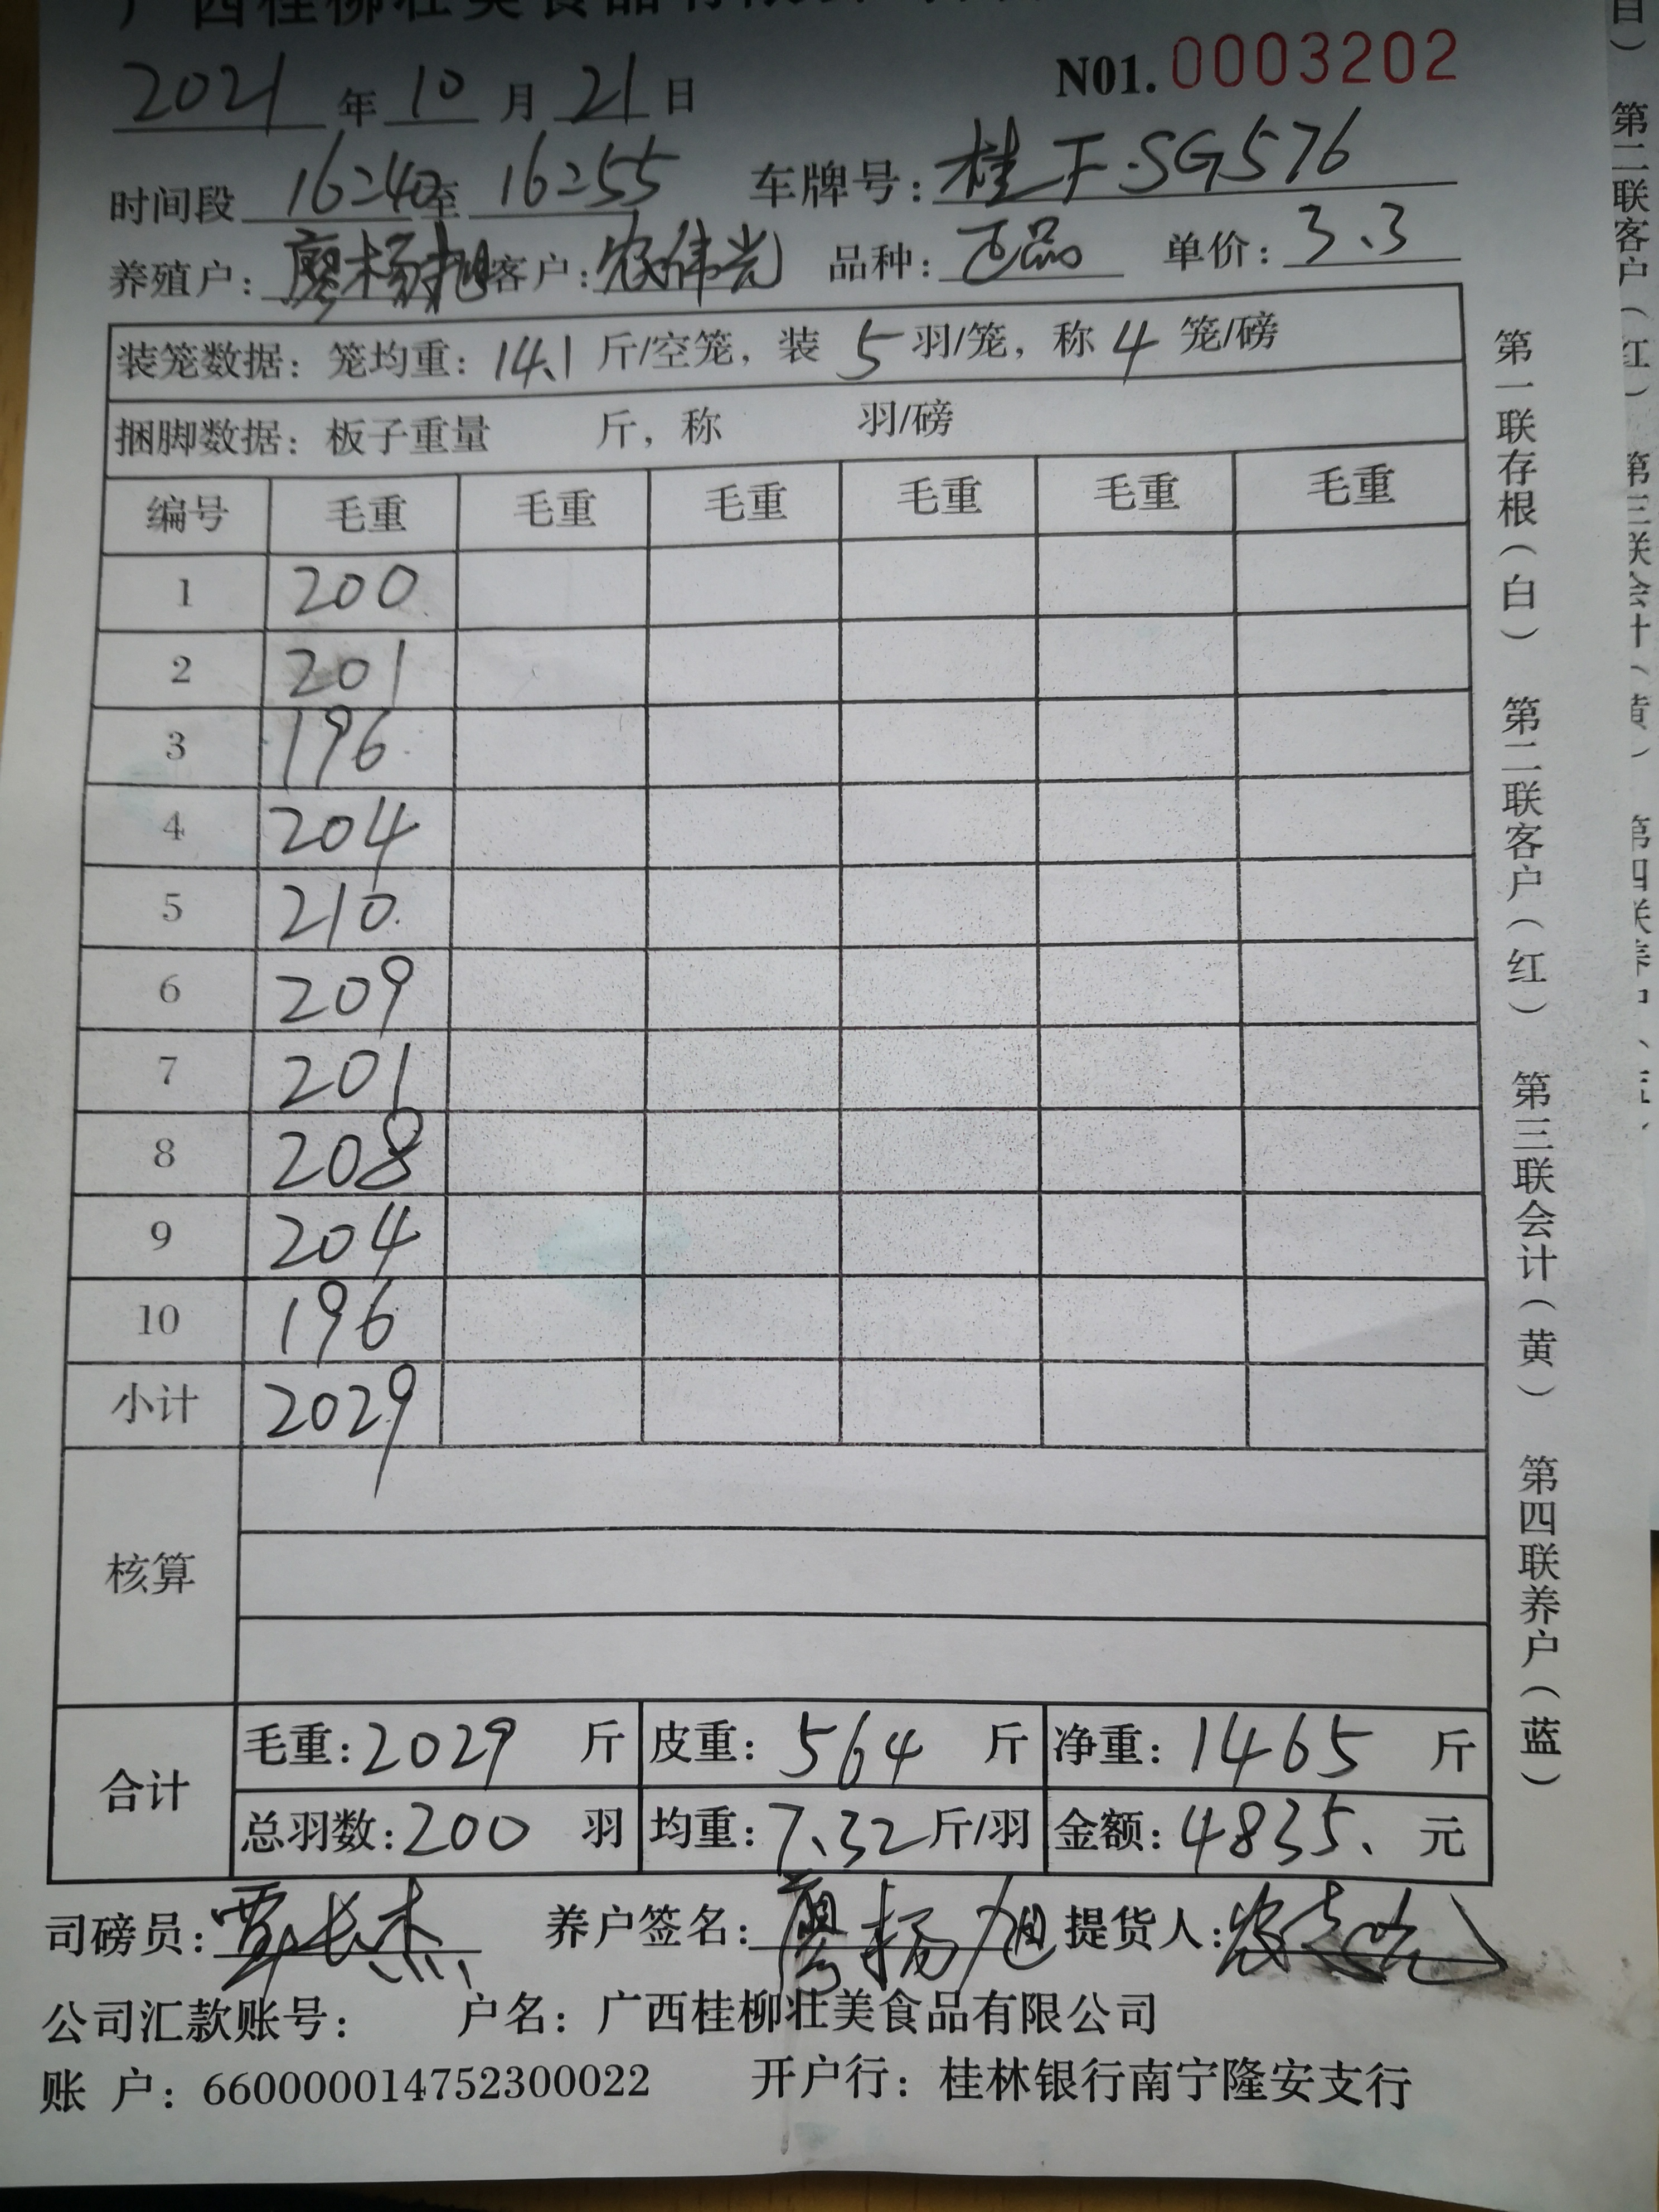 广西桂柳壮美食品有限公司
2021 年 10 月 21 日 N01. 0003202
时间段 16:40 至 16:55 车牌号: 桂F.SG576
养殖户: 廖杨旭 客户: 农伟光 品种: 正品 单价: 3.3
装笼数据: 笼均重: 14.1 斤/空笼, 装 5 羽/笼, 称 4 笼/磅
捆脚数据: 板子重量 斤, 称 羽/磅
编号 毛重 毛重 毛重 毛重 毛重 毛重
1 200
2 201
3 196
4 204
5 210
6 209
7 201
8 208
9 204
10 196
小计 2029
核算
合计
毛重: 2029 斤 皮重: 564 斤 净重: 1465 斤
总羽数: 200 羽 均重: 7.32 斤/羽 金额: 4835. 元
司磅员: 养户签名: 廖杨旭 提货人:
公司汇款账号: 户名: 广西桂柳壮美食品有限公司
账 户: 660000014752300022 开户行: 桂林银行南宁隆安支行
第一联存根(白) 第二联客户(红) 第三联会计(黄) 第四联养户(蓝)
白) 第二联客户(红) 第三联会计(黄) 第四联养户